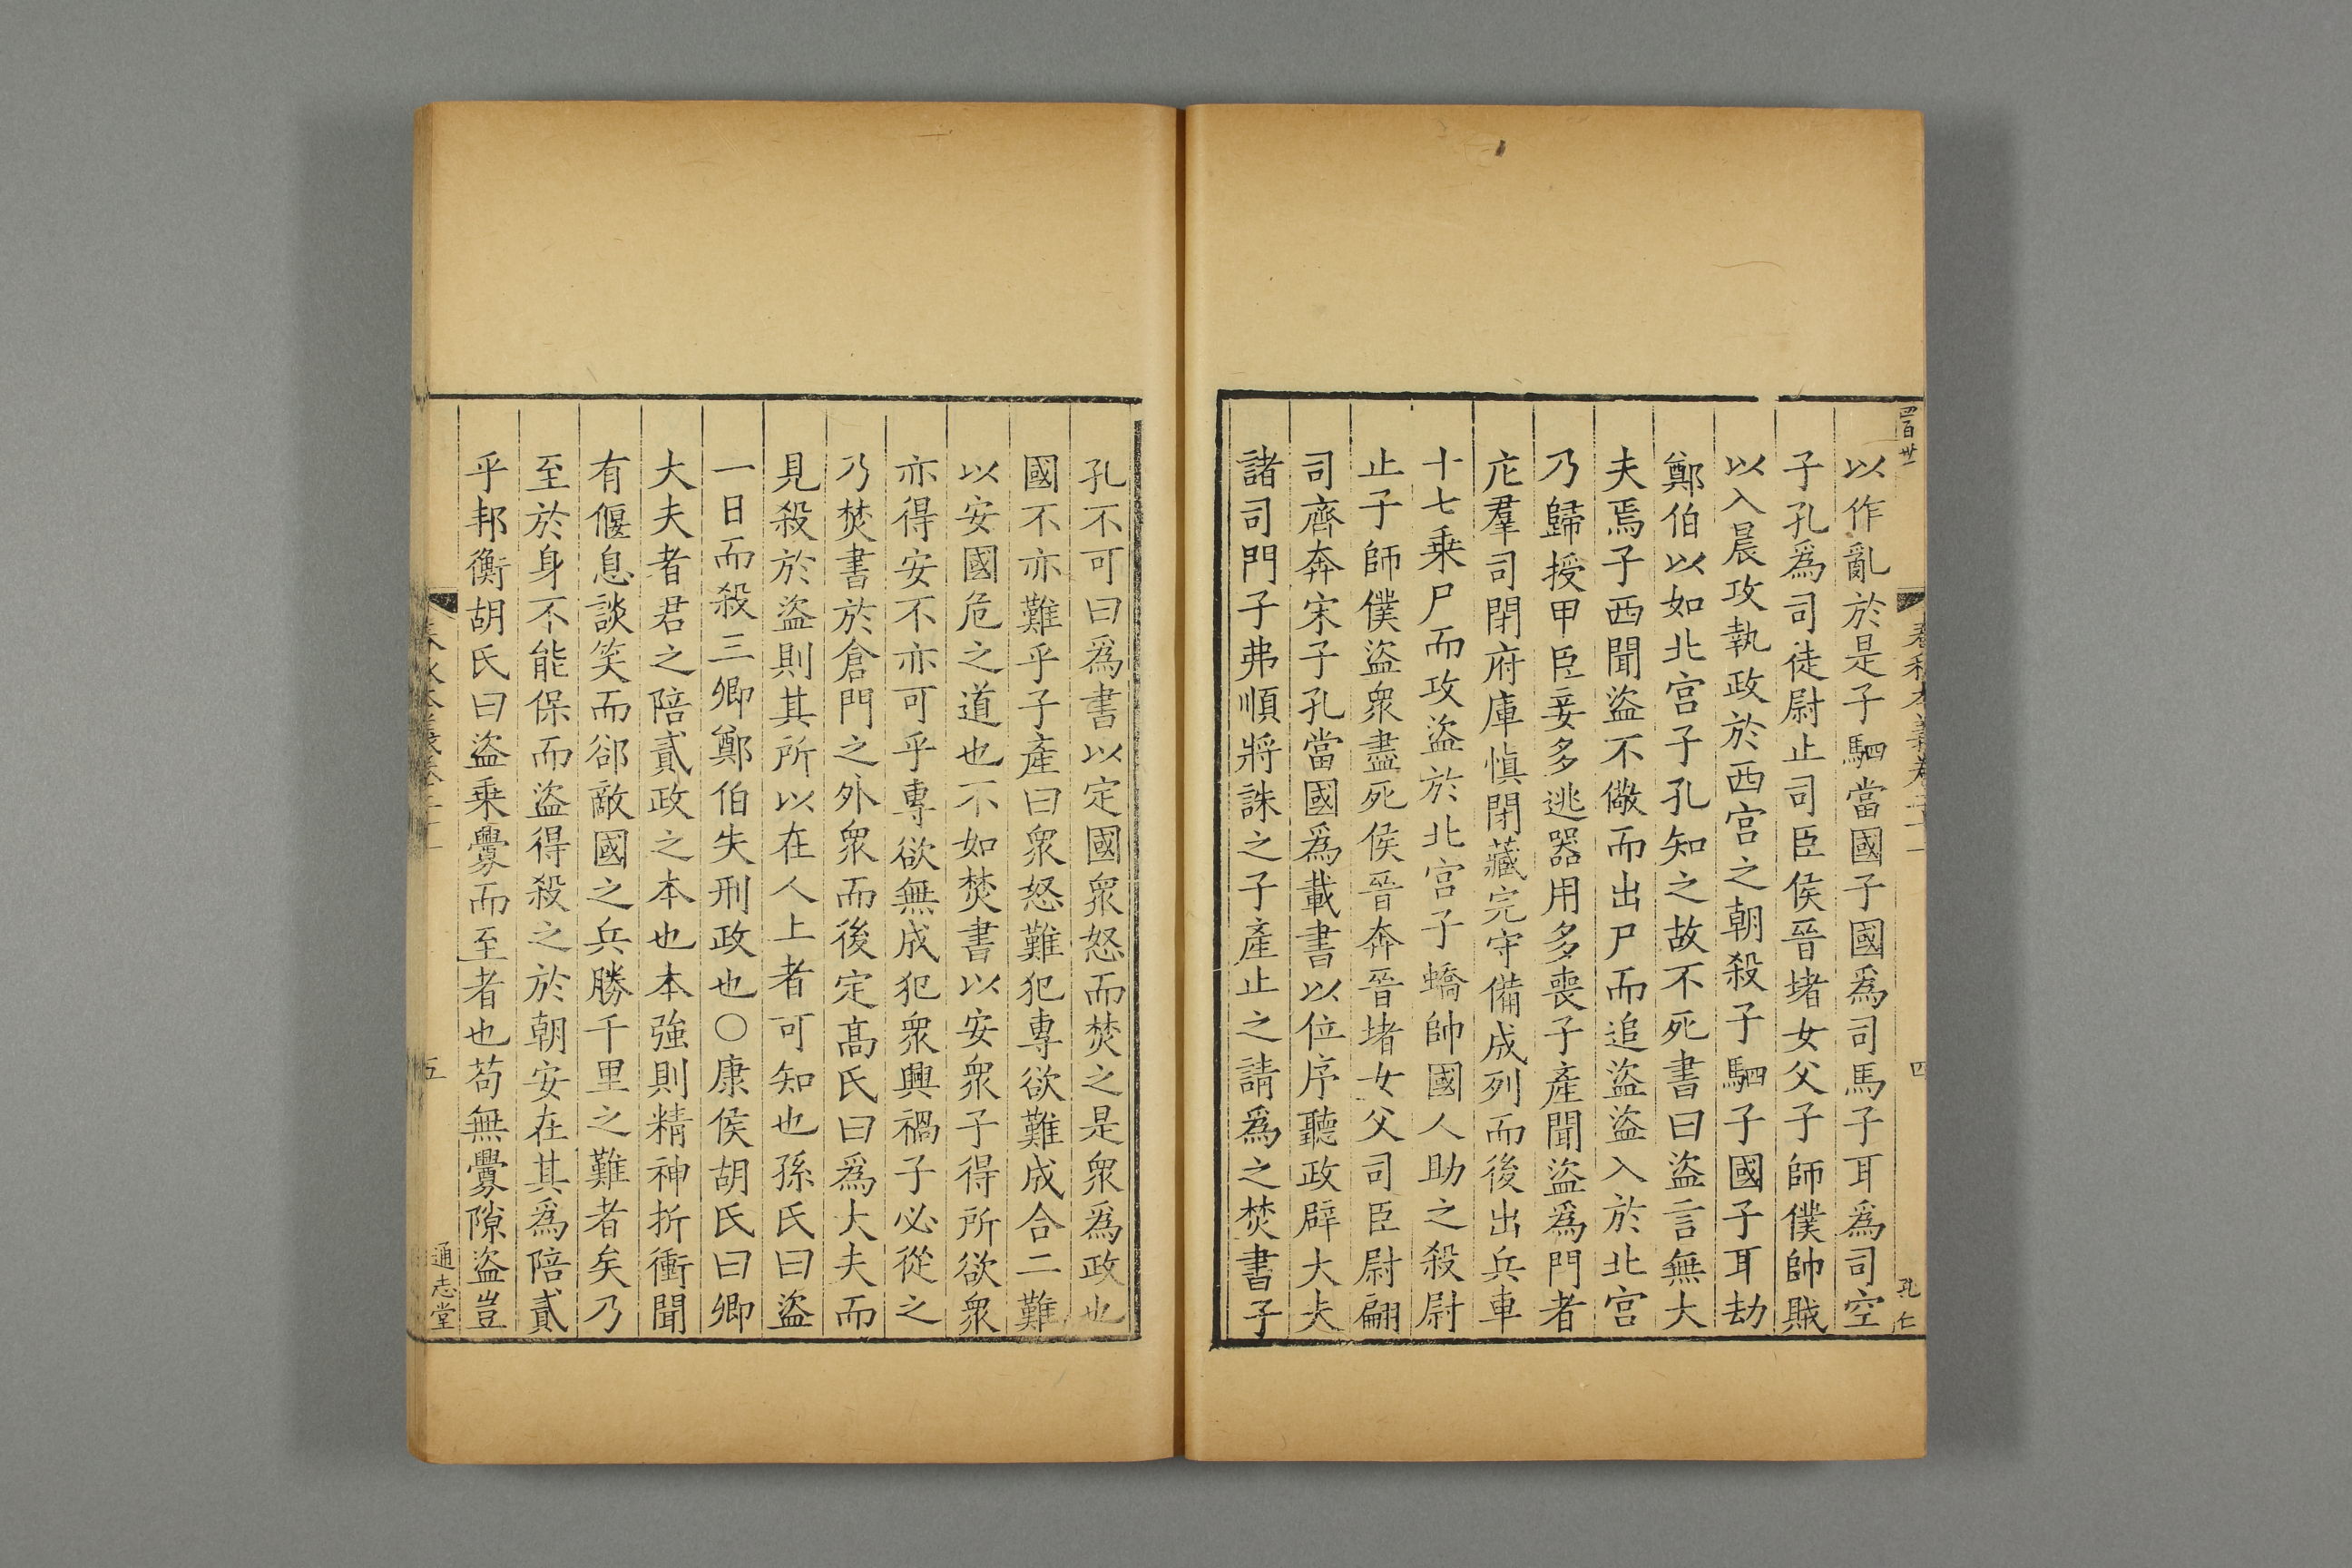 四百卅一
春秋本義卷二十一
四
孔仁
以作亂於是子駟當國子國爲司馬子耳爲司空
子孔爲司徒尉止司臣侯晉堵女父子師僕帥賊
以入晨攻執政於西宮之朝殺子駟子國子耳劫
鄭伯以如北宮子孔知之故不死書曰盜言無大
夫焉子西聞盜不儆而出尸而追盜盜入於北宮
乃歸授甲臣妾多逃器用多喪子產聞盜爲門者
庀羣司閉府庫慎閉藏完守備成列而後出兵車
十七乗尸而攻盜於北宮子蟜帥國人助之殺尉
止子師僕盜衆盡死侯晉奔晉堵女父司臣尉翩
司齊奔宋子孔當國爲載書以位序聽政辟大夫
諸司門子弗順將誅之子產止之請爲之焚書子
孔不可曰爲書以定國衆怒而焚之是衆爲政也
國不亦難乎子產曰衆怒難犯專欲難成合二難
以安國危之道也不如焚書以安衆子得所欲衆
亦得安不亦可乎專欲無成犯衆興禍子必從之
乃焚書於倉門之外衆而後定髙氏曰爲大夫而
見殺於盜則其所以在人上者可知也孫氏曰盜
一日而殺三卿鄭伯失刑政也○康侯胡氏曰卿
大夫者君之陪貳政之本也本強則精神折衝聞
有偃息談笑而郤敵國之兵勝千里之難者矣乃
至於身不能保而盜得殺之於朝安在其爲陪貳
乎邦衡胡氏曰盜乗釁而至者也苟無釁隙盜豈
五
通志堂